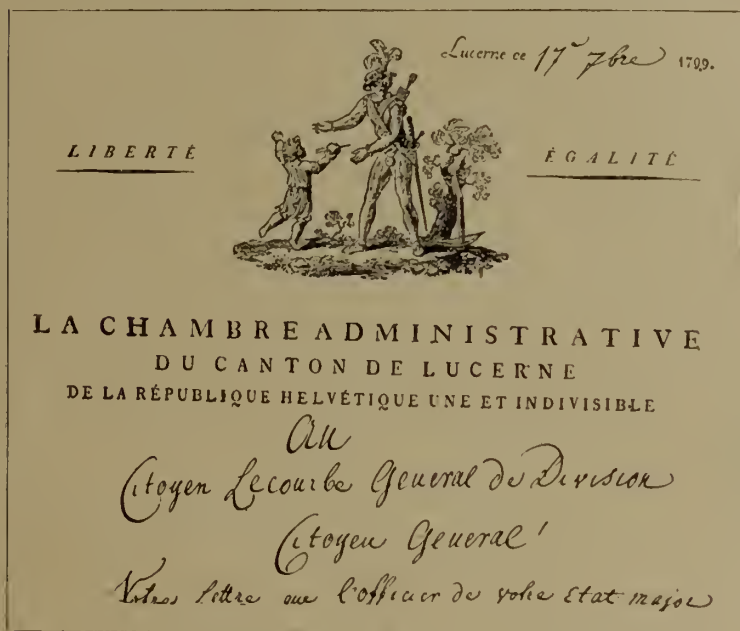 Lucerne ce 17e 7bre 1799.
LIBERTÉ ÉGALITÉ
LA CHAMBRE ADMINISTRATIVE
DU CANTON DE LUCERNE
DE LA RÉPUBLIQUE HELVÉTIQUE UNE ET INDIVISIBLE
Au
Citoyen Lecourbe General de Division
Citoyen General!
Votre lettre que l'officier de votre Etat major